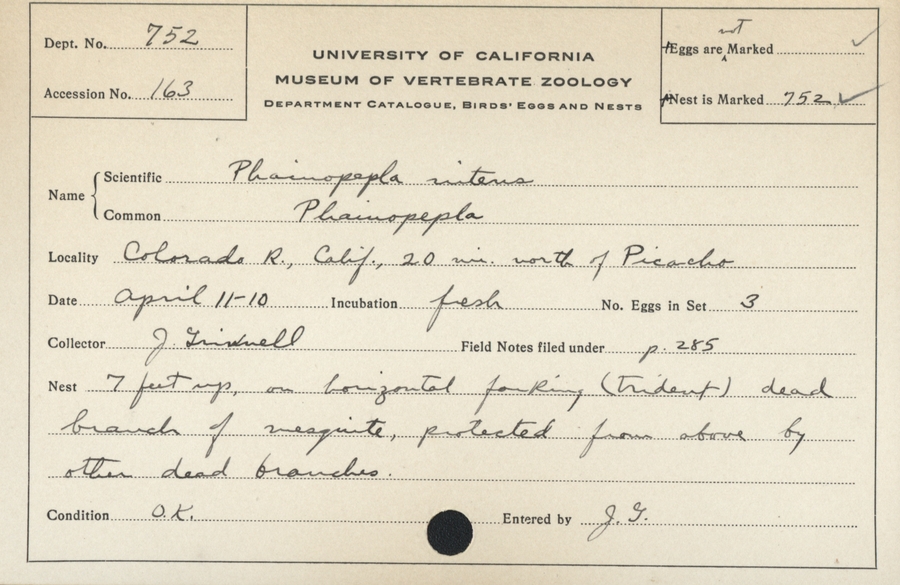 Dept. No. 752
Accession No. 163
UNIVERSITY OF CALIFORNIA
MUSEUM OF VERTEBRATE ZOOLOGY
DEPARTMENT CATALOGUE, BIRDS' EGGS AND NESTS
not
Eggs are ‸ Marked ✓
Nest is Marked 752 ✓
Name { Scientific Phainopepla nitens
Common Phainopepla
Locality Colorado R., Calif., 20 mi. north of Picacho
Date April 11-10 Incubation fresh No. Eggs in Set 3
Collector J. Grinnell Field Notes filed under p. 285
Nest 7 feet up, on horizontal forking (trident) dead
branch of mesquite, protected from above by
other dead branches.
Condition O.K. Entered by J. G.